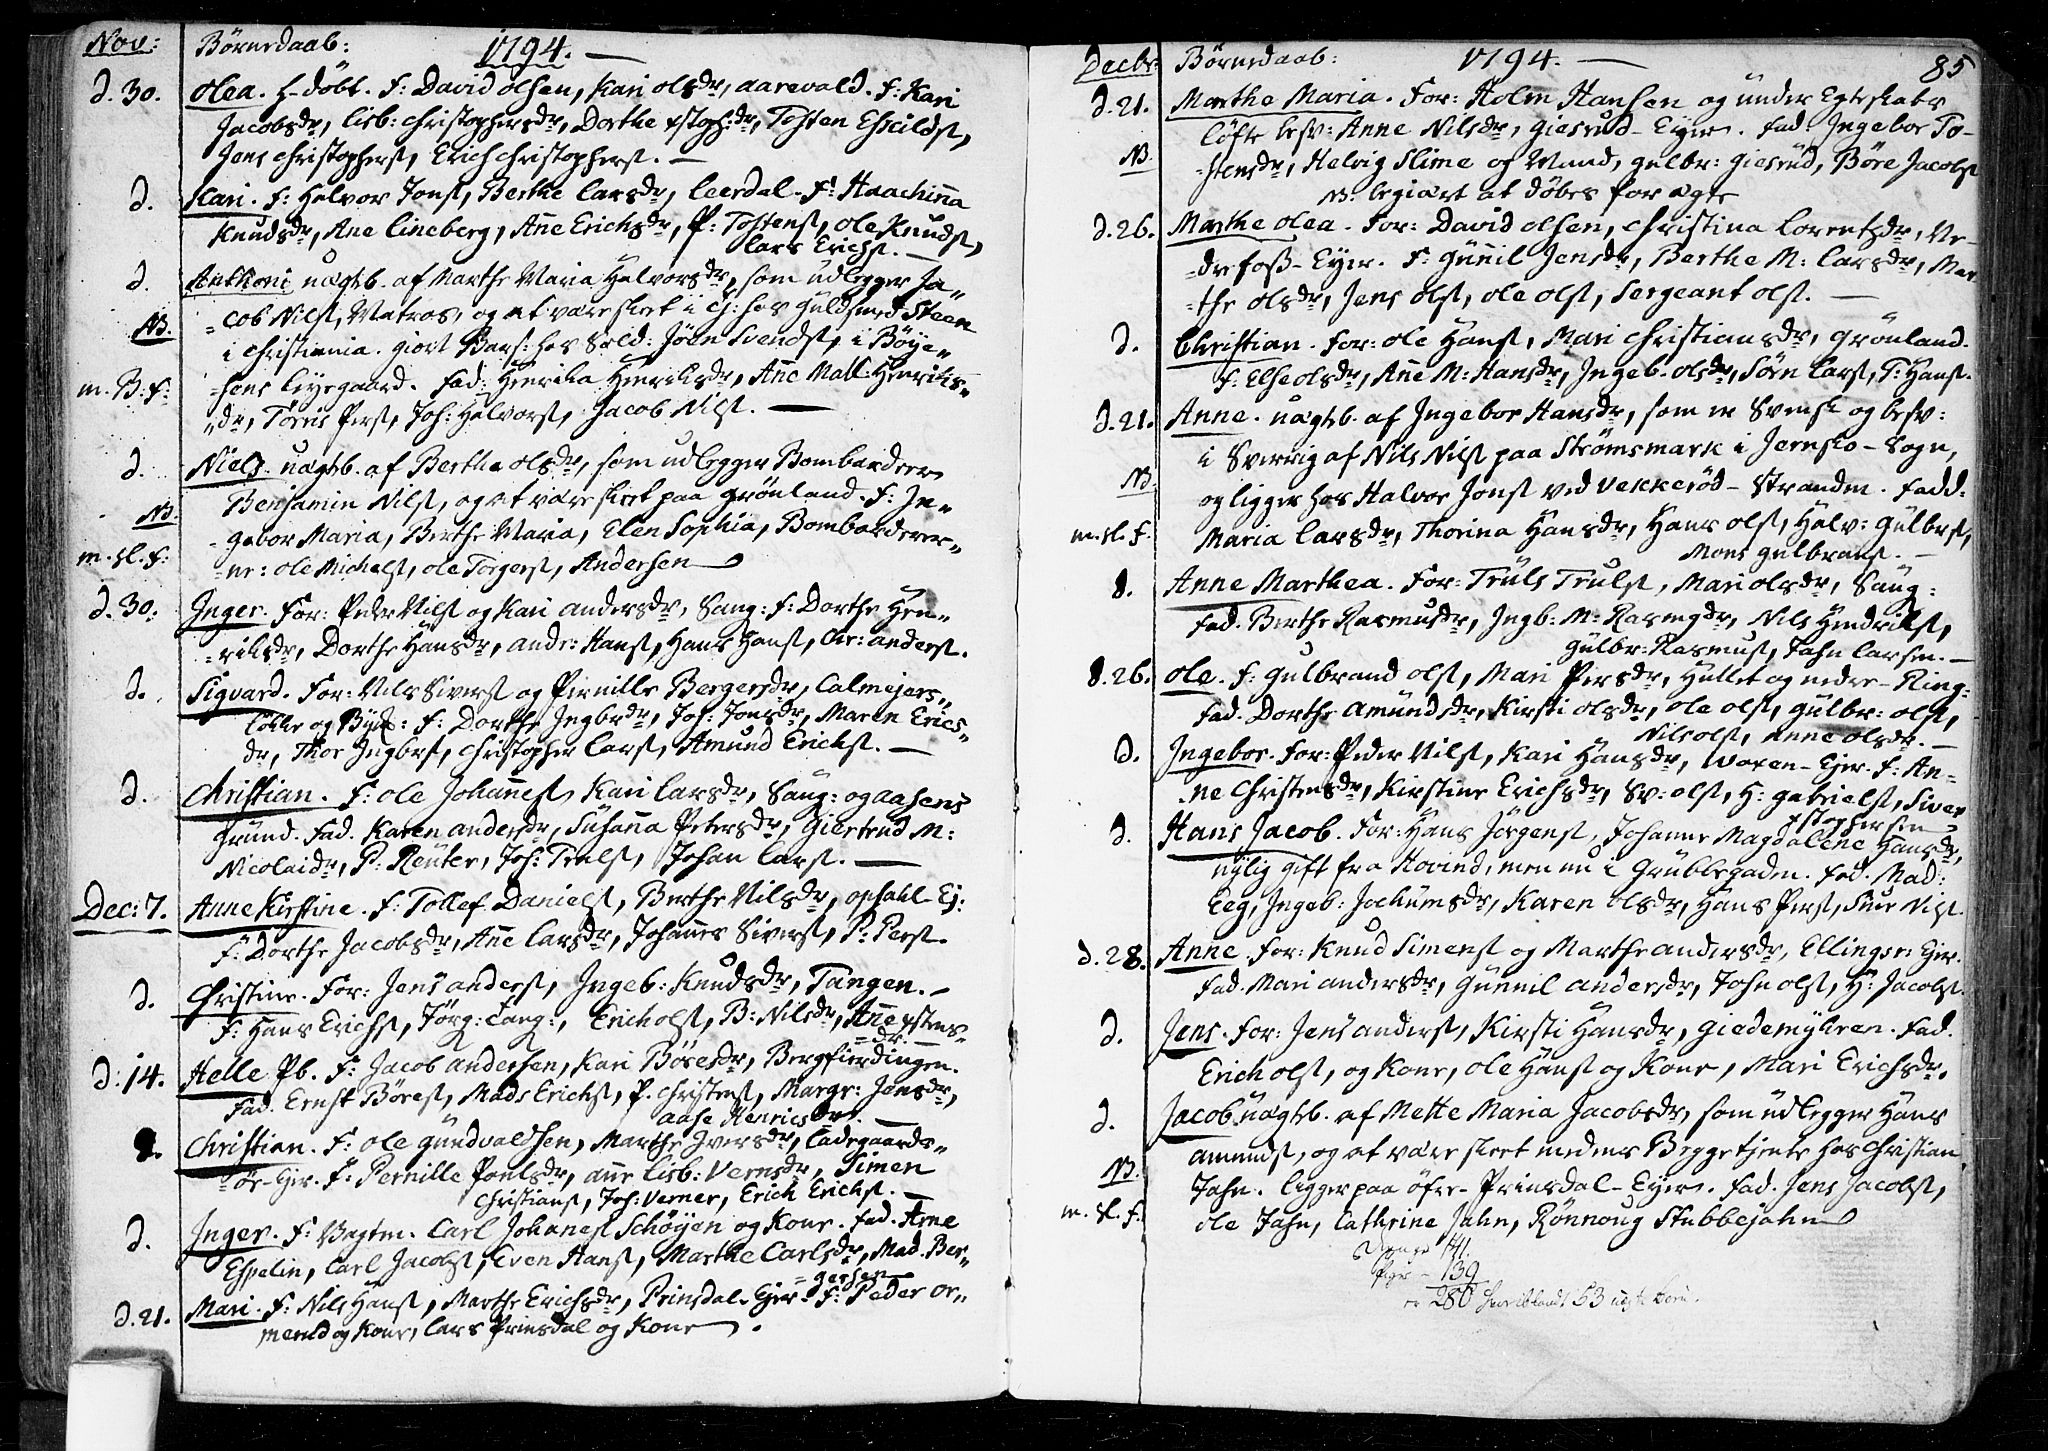 Nov: Börnedaab: 1794.
d. 30. Olea. H-döbt. F: David olsen, Kari olsdr, aarevald. F: Kari
Jacobsdr, Lisb: Christophersdr, Dorthe xstophdr, Tosten Eskildst,
Jens Christopherst, Erich Christopherst.
d. Kari. F: Halvor Jonst, Berthe Larsdr, Leerdal. F: Haachinna
Knudsdr, Ane Lineberg, Anne Erichsdr, P: Tostenst, Ole Knudst,
Lars Erichst.
d. Anthoni uægtb. af Marthe Maria Halvorsdr, som udlegger Ja-
cob Nilst, Matros, og at være skeet i Ch: hos Guldsmed Steen
NB. i Christiania. giort Bars: hos Sold: Jöen Svendst, i Böye-
m. B: f: sens Leyegaard. Fad: Henrika Henriksdr, Anne Mall: Henriks-
dr, Törris Perst, Joh: Halvorst, Jacob Nilst.
d. Niels. uægtb. af Berthe olsdr, som udlegger Bombarderer
Benjamin Nilst, og at være skeet paa Grönland. F: In-
NB. gebor Maria, Berthe Maria, Elen Sophia, Bombarderer-
m. sl. f: ne: ole Michelst, ole Torgerst, Andersen
d. 30. Inger. For: Peder Nilst og Kari andersdr, Saug: F: Dorthe Hen-
riksdr, Dorthe Hansdr, ander: Hanst, Hans Hanst, Chr: anderst.
d. Sigvard. For: Nils Siverst og Pernille Bergersdr, Calmejers-
lökke og Byef: F: Dorthe Ingebrdr, Joh: Jonsdr, Maren Erics-
dr, Thor Ingebrst, Christopher Larst, Amund Erichst.
d. Christian. F: ole Johannest, Kari Larsdr, Saug: og aasens
Grund. Fad. Karen andersdr, Susanna Petersdr, Giertrud M:
Nicolaidr, P: Reuter, Joh: Trulst, Johan Larst.
Dec: 7. Anne Kirstine. F: Tollef Danielst, Berthe Nilsdr, opsahl-Ej:
F: Dorthe Jacobsdr, Anne Larsdr, Johannes Siverst, P: Perst.
d. Christine. For: Jens anderst, Ingeb: Knudsdr, Tangen.
F: Hans Erichst, Jörg: Lang:, Erich olst, B: Nilsdr, Anne xstens-
dr.
d. 14. Helle Pb. F: Jacob andersen, Kari Böresdr, Bergfierdingen.
Fad. Ernst Börest, Mads Erichst, P. Christenst, Margr: Jensdr,
aase Henricsdr.
d. Christian. F: ole Gundvaldsen, Marthe Iversdr, Ladegaards-
öe-Ejer. F: Pernille Poulsdr, anne Lisb: Vernsdr, Simen
Christianst, Joh: Verner, Erich Erichst.
d. Inger. F: Vagtm. Carl Johanest Schöyen og Kone. Fad. Arne
Espelin, Carl Jacobst, Even Hanst, Marthe Carlsdr, Mad. Ber-
gersen
d. 21. Mari. F: Nils Hanst, Marthe Erichsdr, Prinsdal-Ejer. F: Peder or-
merud og Kone, Lars Prinsdal og Kone.
Decbr: Börnedaab: 1794. 85
d. 21. Marthe Maria. For: Holm Hansen og under Egteskabs
löfte besv: Anne Nilsdr, Giesrud-Eyer. Fad: Ingebor To-
NB. stensdr, Helvig Slime og Mand, Gulbr: Giesrud, Böre Jacobst
NB. begiært at döbes for ægte
d. 26. Marthe Olea. For: David olsen, Christina Lorentzdr, Ne-
drefoss-Eyer. F: Gunnil Jensdr, Berthe M: Larsdr, Mar-
the olsdr, Jens olst, ole olst, Sergeant olst.
d. Christian. For: ole Hanst, Mari Christiansdr, Grönland.
F: Else olsdr, Anne M: Hansdr, Ingeb. olsdr, Sörn Larst, P: Hanst.
d. 21. Anne. uægtb. af Ingebor Hansdr, som er Svensk og besv:
i Sverrig af Nils Nilst paa Strömsmark i Jernsko-Sogn,
NB. og ligger hos Halvor Jonst ved Vekkeröd-Stranden. Fadd:
m. sl. f. Maria Larsdr, Thorina Hansdr, Hans olst, Halv: Gulbrst,
Mons Gulbranst.
d. Anne Marthea. For: Truls Trulst, Mari olsdr, Saug:
Fad. Berthe Rasmusdr, Ingb: M: Rasmgdr, Nils Hendrikst,
Gulbr: Rasmust, Jahn Larsen.
d. 26. Ole. F: Gulbrand olst, Mari Persdr, Hullet og nedre-Ring:
Fad. Dorthe Amundsdr, Kirsti olsdr, ole olst, Gulbr: olst,
Nils olst, Anne olsdr.
d. Ingebor. For: Peder Nilst, Kari Hansdr, Voxen-Ejer. F: An-
ne Christensdr, Kirstine Erichsdr, Sv: olst, H: Gabrielst, Siver
xstophersen
d. Hans Jacob. For: Hans Jörgenst, Johanne Magdalene Hansdr,
nylig gift fra Hovind, men nu i Grubbegaden. Fad. Mad:
Eeg, Ingeb: Jochumsdr, Karen olsdr, Hans Perst, Siver Nilst.
d. 28. Anne. For: Knud Simenst og Marthe andersdr, Ellingsr: Ejer.
Fad. Mari andersdr, Gunnil andersdr, John olst, H: Jacobst.
d. Jens. For: Jens anderst, Kirsti Hansdr, Giedemyhren. Fad.
Erich olst, og Kone, ole Hanst og Kone, Mari Erichsdr.
d. Jacob. uægtb. af Mette Maria Jacobsdr, som udlegger Hans
amundst, og at være skeet medens Begge tjente hos Christian
NB. Jahn. ligger paa öfre-Prinsdal-Eyer. Fad. Jens Jacobst,
m. sl. f. ole Jahn, Cathrine Jahn, Rönnoug Stubbejahn
Drenge 141.
Piger - 139
280 hvoriblandt 53 uægte Börn.